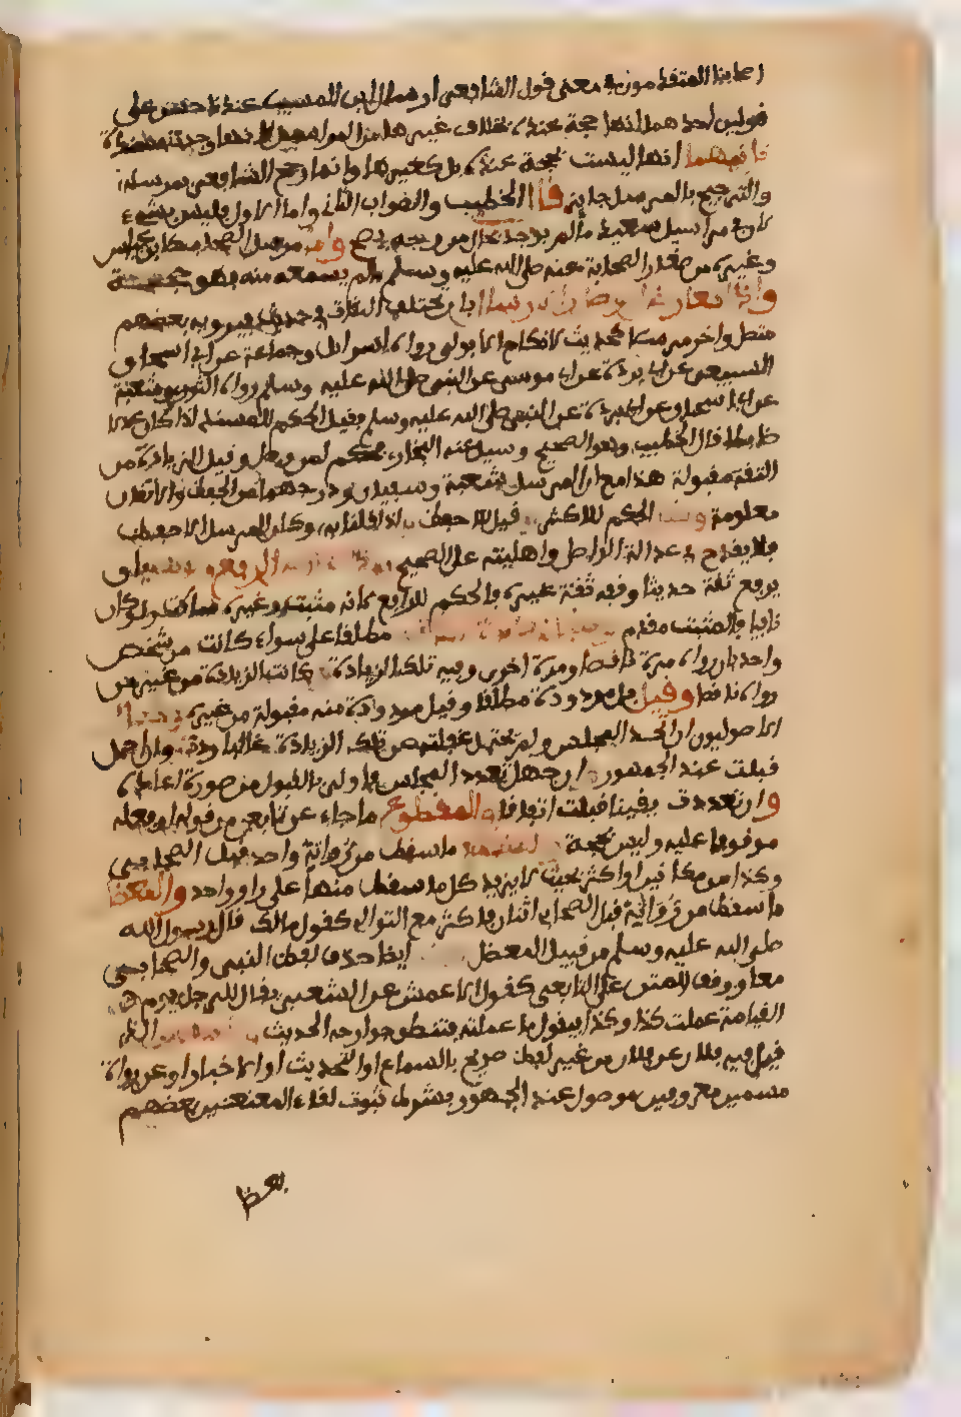 اصحابنا المتقدمون في معنى قول الشافعي ارسال ابن المسيب عندنا حسن على
قولين احدهما انها حجة عنده بخلاف غيرها من المراسيل لانها وجدت مسندة
ثانيهما انها ليست بحجة عنده بل كغيرها وانما رجح الشافعي بمرسله
والترجيح بالمرسل جايز قال الخطيب والصواب الثاني واما الاول فليس بشيء
لان في مراسيل سعيد ما لم يوجد بحال من وجه يصح واما مرسل الصحابي كابن عباس
وغيره من صغار الصحابة عنه صلى الله عليه وسلم مالم يسمعه منه فهو حجة
واذا تعارض الوصل والارسال بان تختلف الثقات في حديث فيرويه بعضهم
متصلا واخر مرسلا كحديث لا نكاح الا بولي رواه اسرائيل وجماعة عن ابي اسحاق
السبيعي عن ابي بردة عن ابي موسى عن النبي صلى الله عليه وسلم ورواه الثوري وشعبة
عن ابي اسحاق عن ابي بردة عن النبي صلى الله عليه وسلم فقيل الحكم للمسند اذا كان عدلا
ضابطا قال الخطيب وهو الصحيح وسئل عنه البخاري فحكم لمن وصل وقيل الزيادة من
الثقة مقبولة هذا مع ان المرسل شعبة وسفيان ودرجتهما من الحفظ والاتقان
معلومة وقيل الحكم للاكثر وقيل للاحفظ واذا قلنا به وكان المرسل الاحفظ
فلا يقدح في عدالة الواصل واهليته على الصحيح واذا تعارض الرفع والوقف بان
يرفع ثقة حديثا وقفه ثقة غيره فالحكم للرافع لانه مثبت وغيره ساكت ولو كان
نافيا فالمثبت مقدم مطلقا على سواء كانت من شخص
واحد بان رواه مرة ناقصا ومرة اخرى وفيه تلك الزيادة او كانت الزيادة من غير من
رواه ناقصا وقيل بل مردودة مطلقا وقيل مردودة منه مقبولة من غيره وقال
الاصوليون ان اتحد المجلس ولم يحتمل غفلته عن تلك الزيادة غالبا ردت وان احتمل
قبلت عند الجمهور وان جهل تعدد المجلس فاولى بالقبول من صورة اتحاده
وان تعددت يقينا قبلت اتفاقا والمقطوع ما جاء عن تابعي من قوله او فعله
موقوفا عليه وليس بحجة والمنقطع ما سقط من رواته واحد قبل الصحابي
وكذا من مكانين او اكثر بحيث لا يزيد كل ما سقط منها على راو واحد والمعضل
ما سقط من رواته قبل الصحابي اثنان فاكثر مع التوالي كقول مالك قال رسول الله
صلى الله عليه وسلم ومن قبيل المعضل ايضا حذف لفظ النبي والصحابي
معا ووقف المتن على التابعي كقول الاعمش عن الشعبي يقال للرجل يوم
القيامة عملت كذا وكذا فيقول ما عملته فتنطق جوارحه الحديث الذي
قيل فيه فلان عن فلان من غير لفظ صريح بالسماع او التحديث او الاخبار او عن رواة
مسمين معروفين موصول عند الجمهور بشرط ثبوت لقاء المعنعنين بعضهم
بعضا